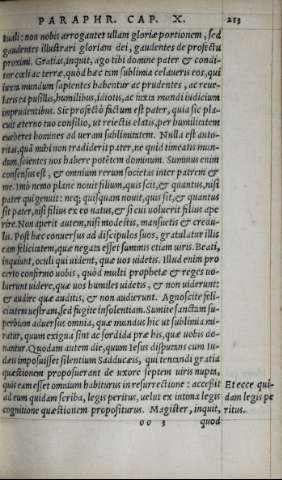 PARAPHR. CAP. X. 213
tuali: non nobis arrogantes ullam gloriæ portionem, sed
gaudentes illustrari gloriam dei, gaudentes de profectu
proximi. Gratias, inquit, ago tibi domine pater & condi-
tor cœli ac terræ, quòd hæc tam sublimia celaueris eos, qui
iuxta mundum sapientes habentur ac prudentes, ac reue-
laris ea pusillis, humilibus, idiotis, ac iuxta mundi iudicium
imprudentibus. Sic profectò factum est pater, quia sic pla-
cuit æterno tuo consilio, ut reiectis elatis, per humilitatem
eueheres homines ad ueram sublimitatem. Nulla est auto-
ritas, quã mihi non tradiderit pater, ne quid timeatis mun-
dum, scientes uos habere potētem dominum. Summus enim
consensus est, & omnium rerum societas inter patrem &
me. Imò nemo plane nouit filium, quis sit, & quantus, nisi
pater qui genuit: neq; quisquam nouit, quis sit, & quantus
sit pater, nisi filius ex eo natus, & si cui uoluerit filius ape
rire. Non aperit autem, nisi modestis, mansuetis & credu-
lis. Post hæc conuersus ad discipulos suos, gratulatur illis
eam felicitatem, quæ negata esset summis etiam uiris. Beati,
inquiunt, oculi qui uident, quæ uos uidetis. Illud enim pro
certo confirmo uobis, quòd multi prophetæ & reges uo-
luerunt uidere, quæ uos humiles uidetis, & non uiderunt:
& audire quæ auditis, & non audierunt. Agnoscite feli-
citatem uestram, sed fugite insolentiam. Sumite sanctam su-
perbiam aduersus omnia, quæ mundus hic ut sublimia mi-
ratur, quàm exigua sint ac sordida præ his, quæ uobis do-
nantur. Quodam autem die, quum Iesus disputans cum Iu-
dæis imposuisset silentium Sadducæis, qui tentandi gratia
quæstionem proposuerant de uxore septem uiris nupta,
quis eam esset omnium habiturus in resurrectione: accessit
ad eum quidam scriba, legis peritus, uelut ex intima legis
cognitione quæstionem propositurus. Magister, inquit,
Et ecce qui-
dam legis pe
ritus.
oo 3 quod